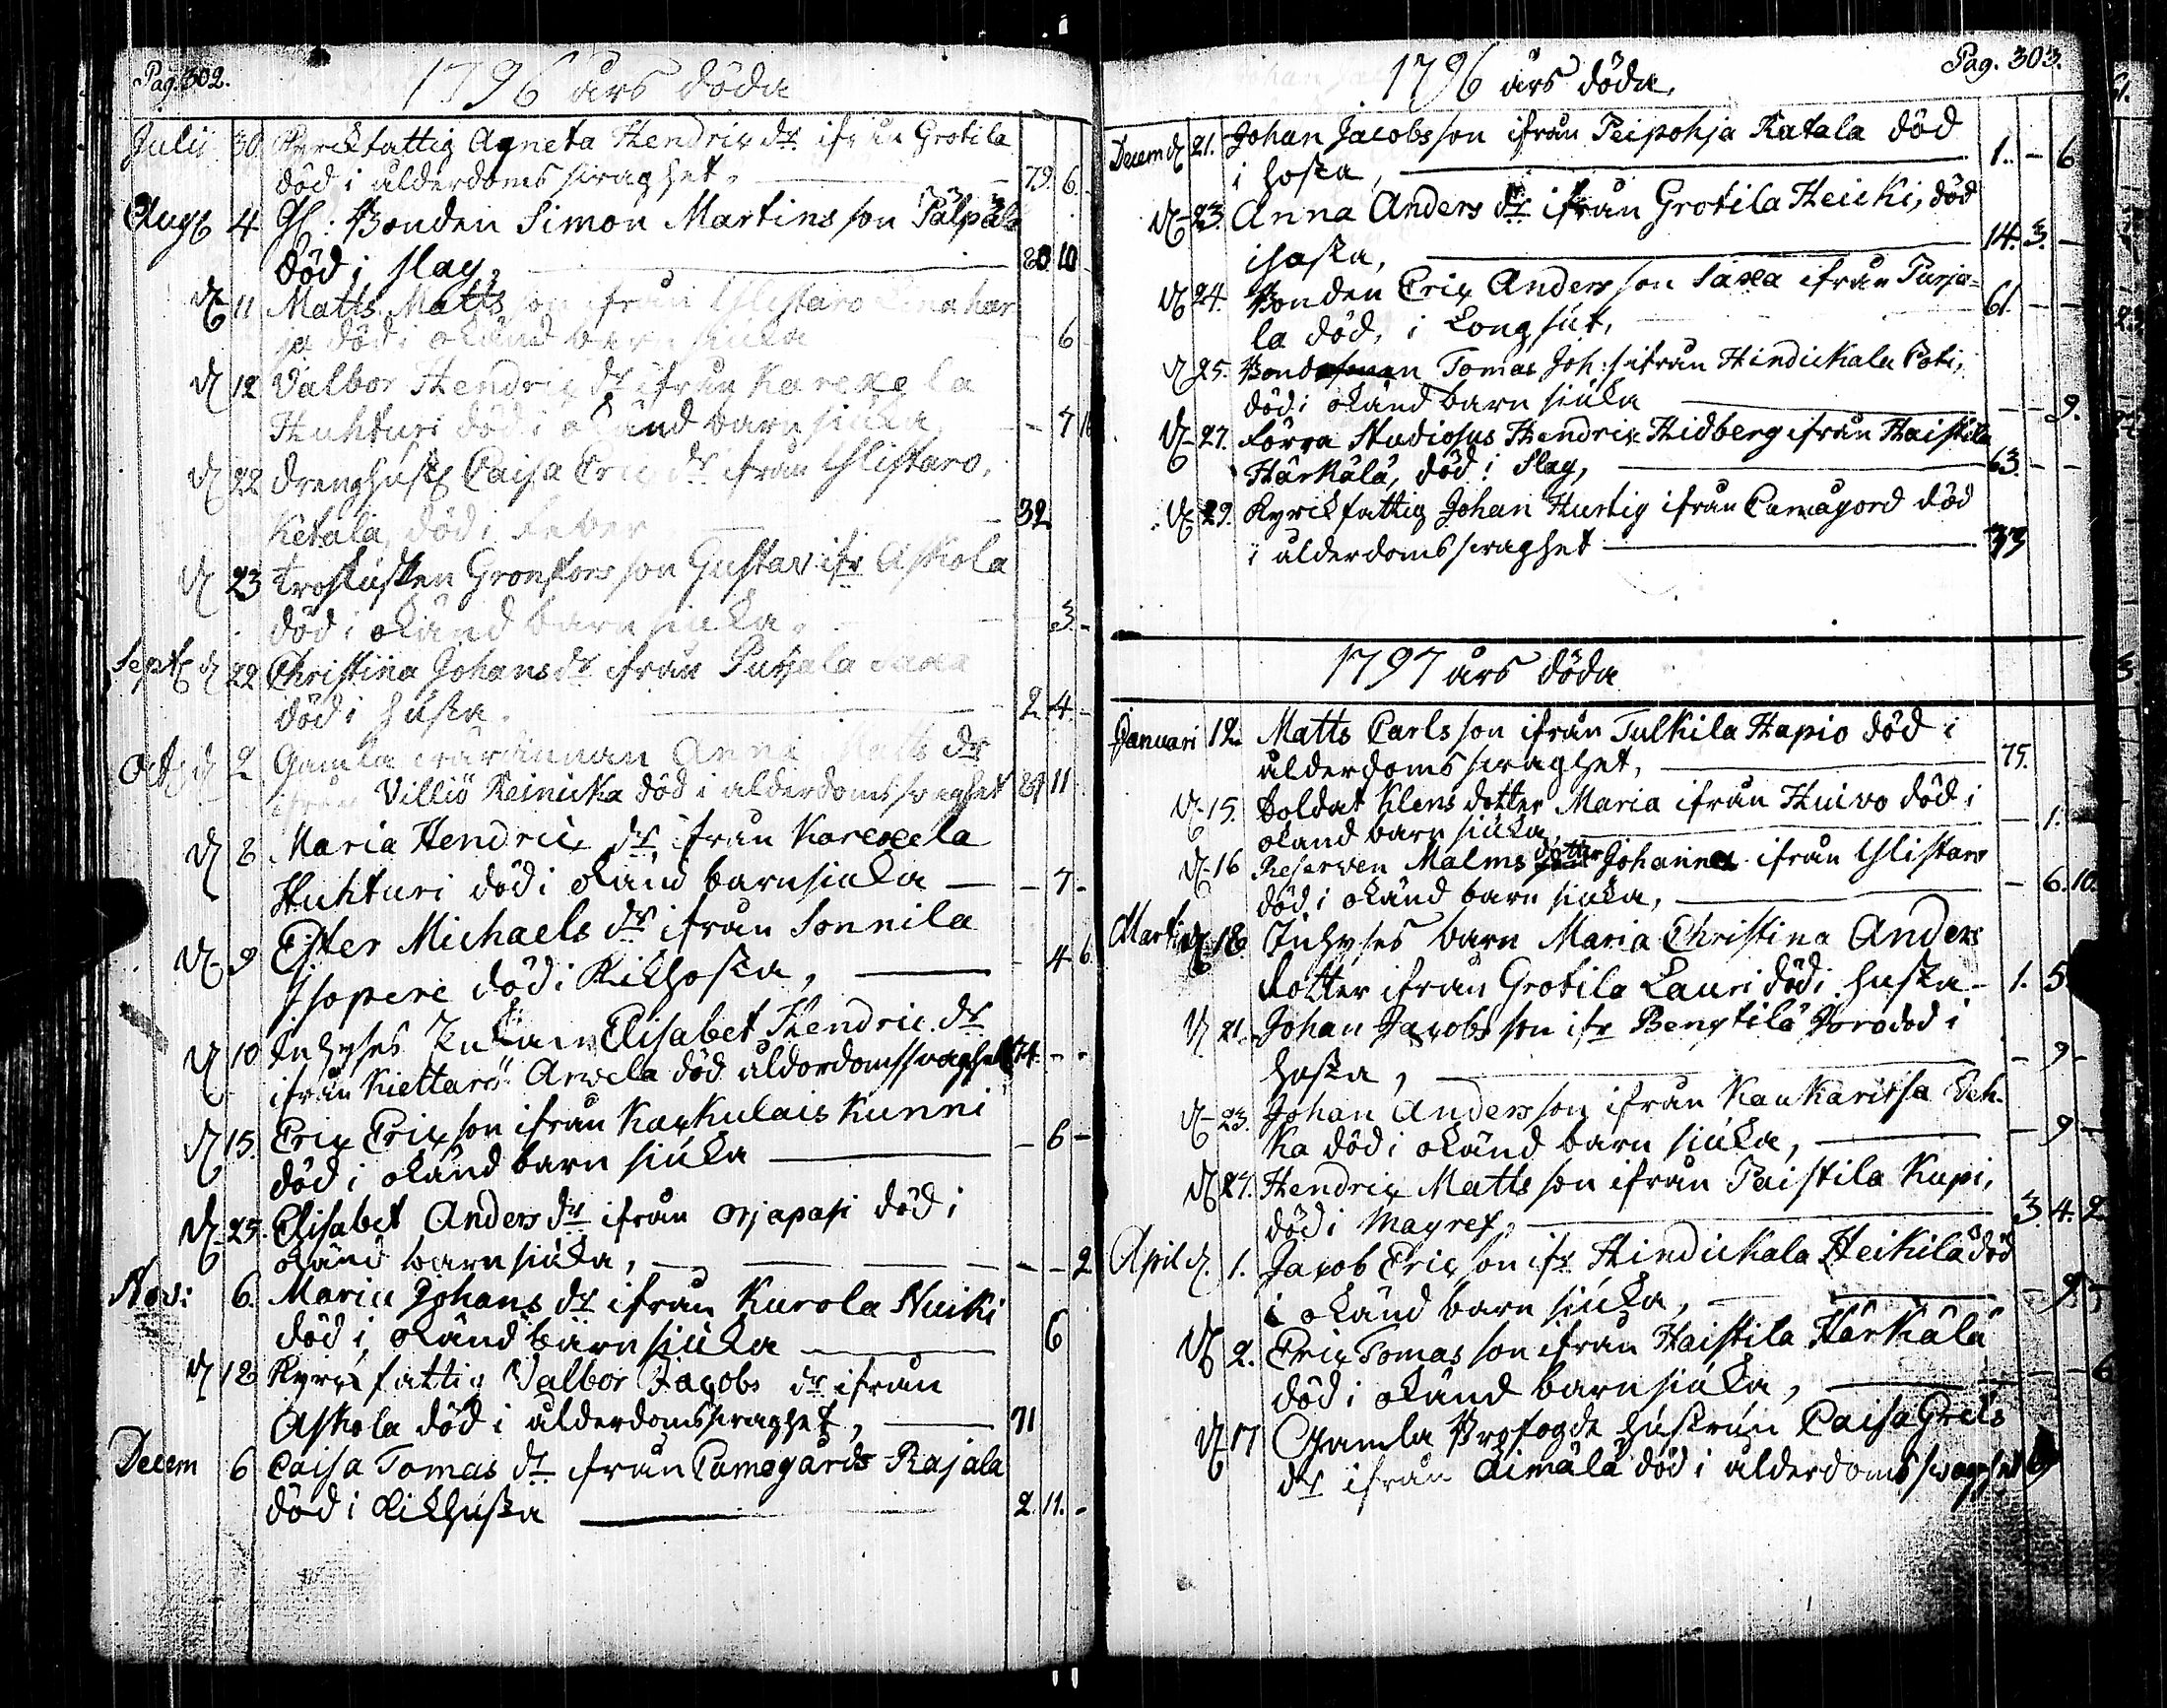 Pag. 302.
1796 års döda
Julii 30 Kyrckfattig Agneta Hendrix dr ifrån Grotila
död i ålderdoms swaghet. 79. 6.
Aug 4 Gl: Bonden Simon Martins son Pälpälä
död i slag, 80 10
d 11 Matts Matts son ifrån Ylistaro
ja död i okänd barn siuka 6
d 12 Valbor Hendrix dr ifrån Karexela
Huhturi död i okänd barn siuka, - 7
d 22 Drenghust Caisa Eric dr ifrån Ylistaro,
Ketala, död i Feber 32
d 23 Trosskusken Gronfors son Gustav ifr Askola
död i okänd barn siuka, 3. -
Sept d 22 Christina Johans dr ifrån Purjala Saxa
död i husta. 2. 4. -
Oct d 2 Gamla wärdinnan Anna Matts dr
ifrån Villiö Reinicka död i alderdoms swaghet 81 11
d 8 Maria Hendric dr ifrån Karexela
Huhturi död i okänd barnsiuka - - 7 -
d 9 Ester Michaels dr ifrån Sonnila
Isopere död i Kikhosta, - 4 6
d 10 Inhyses Enkan Elisabet Hendric dr
ifrån Kiettarö Arvela död ålderdomsswaghet 74. - -
d 15. Eric Erix son ifrån Kaukulais Kunni
död i okänd barn siuka - 6 -
d 25. Elisabet Anders dr ifrån Orjapasi död i
okänd barn siuka, - - 2
Nov: 6. Maria Johans dr ifrån Kurola Nuiki
död i, okänd barn siuka 6
d 18 Kyrck fattig Valbor Jacobs dr ifrån
Askola död i ålderdomsswaghet, 71
Decem 6 Caisa Tomas dr ifrån Pamogårds Rajala
död i Kikhusta 2. 11. -
Pag. 303.
1796 års döda,
Decem d 21. Johan Jacobs son ifrån Peipohja Katala död
i hosta, 1. - 6
d 23. Anna Anders dr ifrån Grotila Heicki, död
i hosta, 14. 3. -
d 24. Bonden Erix Anders son Saxa ifrån Purja-
la död, i Longsut, 61. - -
d 25. Tomas Joh: s ifrån Hindickala Poti,
död i okänd barn siuka - - 9.
d 27. Förra Studiosus Hendrik Hidberg ifrån Haistila
Härkälä, död i Slag, 63. - -
d 29. Kyrckfattig Johan Hurtig ifrån Pamagord död
i ålderdoms swaghet 73
1797 års döda
Januari 12. Matts Carls son ifrån Tulkila Hapio död i
ålderdoms swaghet, 75.
d 15. Soldat Klens dotter Maria ifrån Huivo död i
okänd barn siuka, - 1. -
d 16 Reserven Malms dotter Johanna ifrån Ylistaro
död i okänd barn siuka, - 6. 10.
Marti d 18. Inhyses barn Maria Christina Anders
dotter ifrån Grotila Lauri död i husta - 1. 5
d 21. Johan Jacobs son ifr Bengtilä Poro död i
hosta, - 9 -
d 23. Johan Anders son ifrån Kaukaritsa Och-
ka död i okänd barn siuka, - 9 -
d 27. Hendric Matts son ifrån Paistila Kupi,
död i Magref, 3. 4. 2
April d. 1. Jacob Eric son ifr Hindickala Heikilä död
i okänd barn siuka, - 9 -
d 2. Eric Tomas son ifrån Haistila Härkälä
död i okänd barn siuka, - - 6
d 17 Gamla Profogde hustrun Caisa Grels
dr ifrån Äimälä död i ålderdoms swaghet